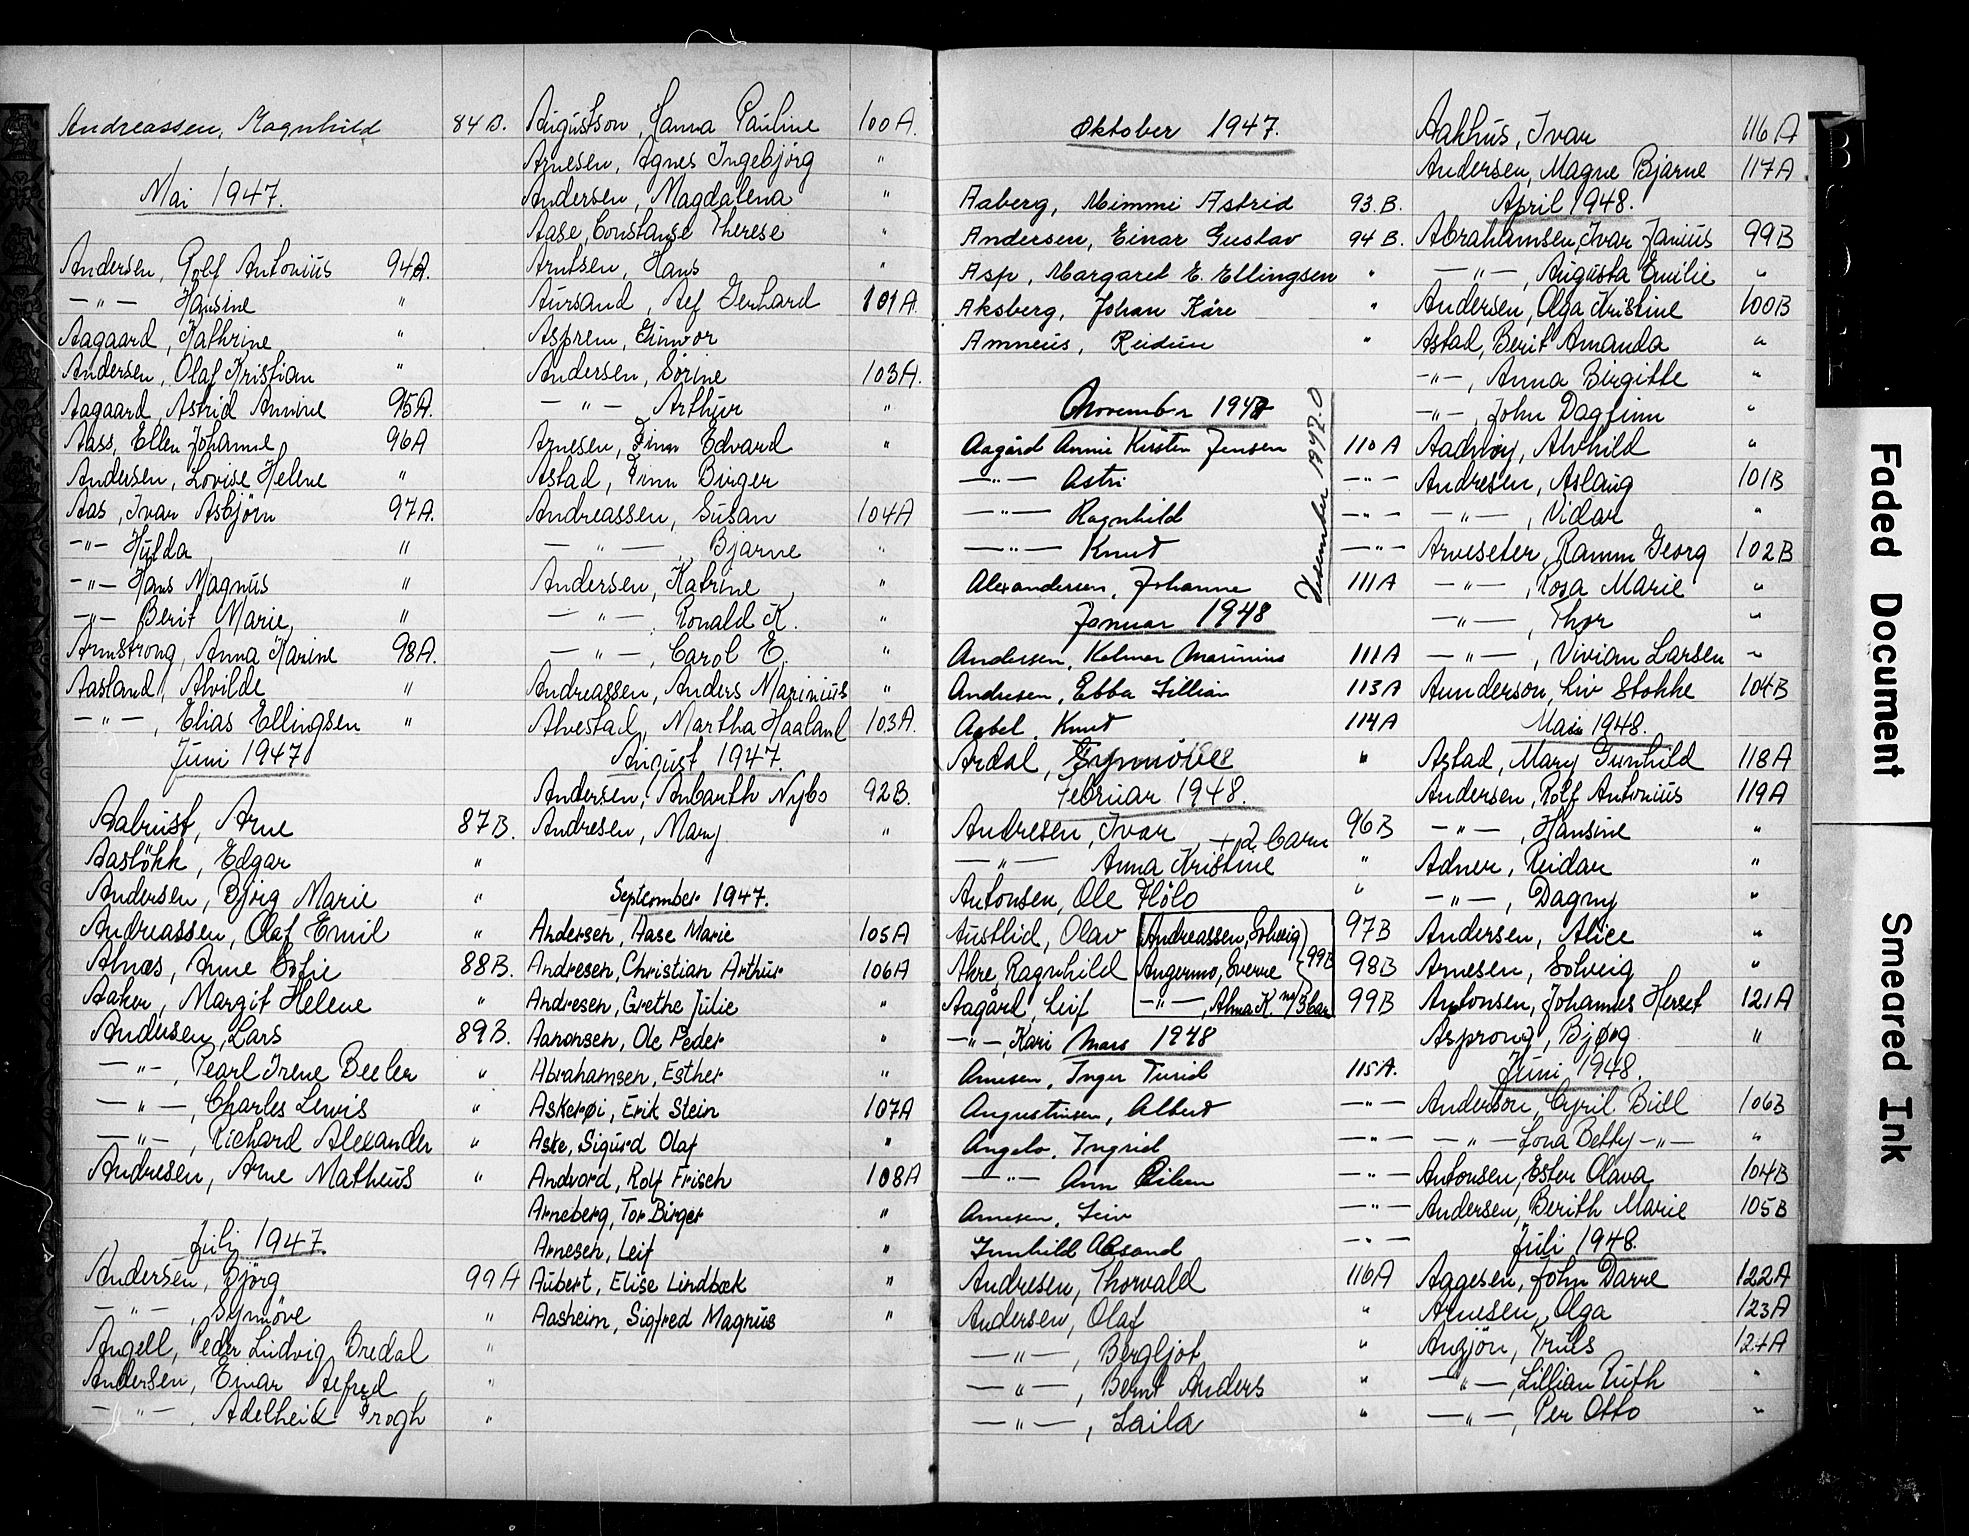 Andreassen, Ragnhild 84B.
Mai 1947.
Andersen, Rolf Antonius 94A.
—"— Hansine "
Aagaard, Kathrine "
Andersen, Olaf Kristian "
Aagaard, Astrid Annine 95A.
Aass, Ellen Johanne 96A
Andersen, Lovise Helene "
Aas, Ivar Asbjörn 97A.
—"— Hulda "
—"— Hans Magnus "
—"— Berit Marie, "
Armstrong, Anna Karine 98A.
Aasland, Alvilde "
—"—, Elias Ellingsen "
Juni 1947
Aabrust, Arne 87B.
Aaslökk, Edgar "
Andersen, Bjørg Marie "
Andreassen, Olaf Emil "
Alnæs, Anne Sofie 88B.
Aaker, Margit Helene "
Andersen, Lars 89B.
—"—, Pearl Irene Beeler "
—"—, Charles Lewis "
—"—, Richard Alexander "
Andresen, Arne Matheus "
Juli 1947.
Andersen, Björg 99A
—"—, Synnöve "
Angell, Peder Ludvig Bredal "
Andersen, Einar Alfred "
—"—, Adelheid Krogh "
Augustson, Hanna Pauline 100A.
Arnesen, Agnes Ingebjørg "
Andersen, Magdalena "
Aase, Constanse Therese "
Arntsen, Hans "
Aursand, Alf Gerhard 101A.
Asprem, Gunvor
Andersen, Sörine 103A.
—"— Arthur "
Arnesen, Finn Edvard "
Astad, Finn Birger
Andreassen, Susan 104A
—"—, Bjarne "
Andersen, Katrine, "
—"—, Ronald K. "
—"—, Carol E. "
Andreassen, Anders Marinius "
Alvestad, Martha Haaland 103A.
August 1947.
Andersen, Anbarth Nybo 92B.
Andresen, Mary "
September 1947.
Andersen, Aase Marie 105A
Andresen, Christian Arthur 106A
Andresen, Grethe Julie "
Aanonsen, Ole Peder "
Abrahamsen, Esther "
Askerøi, Erik Stein 107A
Aske, Sigurd Olaf "
Andvord, Rolf Frisch 108A
Arneberg, Tor Birger "
Arnesen, Leif "
Aubert, Elise Lindbæk "
Aasheim, Sigfred Magnus "
Oktober 1947.
Aaberg, Mimmi Astrid 93.B.
Andersen, Einar Gustav 94B.
Asp, Margaret E. Ellingsen "
Aksberg, Johan Kåre "
Amneus, Reidun "
November 1947
Aagård Annie Kirsten Jensen 110A
—"— Astri —"—
—"— Ragnhild —"—
—"— Knut —"—
Desember 1947.0
Alexandersen, Johanne 111A
Januar 1948
Andersen, Kolmar Marinius 111A
Andresen, Ebba Lillian 113A
Aabel, Knut 114A
Årdal, Synnöve "
Februar 1948.
Andresen, Ivar + 2 barn 96B
—"— Anna Kristine "
Antonsen, Ole Flölo "
Austlid, Olav 97B
Andreassen, Solveig
Angermo, Sverre 99B
—"—, Alma K. m/3 bar
Åkre, Ragnhild 98B
Aagård, Leif 99B
—"—, Kari
Mars 1948
Arnesen, Inger Turid 115A.
Augustinsen, Albert —"—
Angelo, Ingrid —"—
—"— Ann Eileen —"—
Arnesen, Leiv —"—
—"—
Andresen, Thorvald 116A
Andersen, Olaf "
—"—, Bergljot "
—"—, Bernt Anders "
—"—, Laila "
Aakhus, Ivar 116A
Andersen, Magne Bjarne 117A
April 1948.
Abrahamsen, Ivar Janius 99B
—"—, Augusta Emilie "
Andersen, Olga Kristine 100B
Astad, Berit Amanda "
—"—, Anna Birgitte "
—"—, John Dagfinn "
Aadnøy, Alvhild "
Andresen, Aslaug 101B
—"—, Vidar "
Arveseter, Ramm Georg 102B
—"—, Rosa Marie "
—"—, Thor "
—"—, Vivian Larsen "
Aunderson, Liv Stokke 104B
Mai 1948.
Astad, Mary Gunhild 118A
Andersen, Rolf Antonius 119A
—"—, Hansine "
Adner, Reidar "
—"—, Dagny "
Andersen, Alice "
Arnesen, Solveig "
Antonsen, Johannes Herset 121A
Asprong, Bjørg "
Juni 1948.
Anderson, Cyril Bull 106B
—"— Lona Betty —"— "
Antonsen, Ester Olava 104B
Andersen, Berith Marie 105B
Juli 1948.
Aagesen, John Darre 122A
Arnesen, Olga 123A
Anzjön, Truls 124A
—"—, Lillian Ruth "
—"—, Per Otto "
Faded Document
Smeared Ink